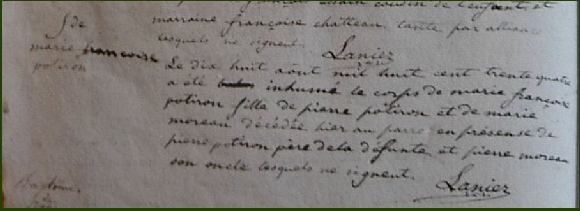 cousin de l'enfant, et
marraine françoise chatteau, tante par alliance
lesquels ne signent. Lanier
S de
marie francoise
potiron
Le dix huit aout mil huit cent trente quatre
a été inhumé le corps de marie françoise
potiron fille de pierre potiron et de marie
moreau décédée hier au parc en présense de
pierre potiron père de la défunte et pierre moreau
son oncle lesquels ne signent. Lanier